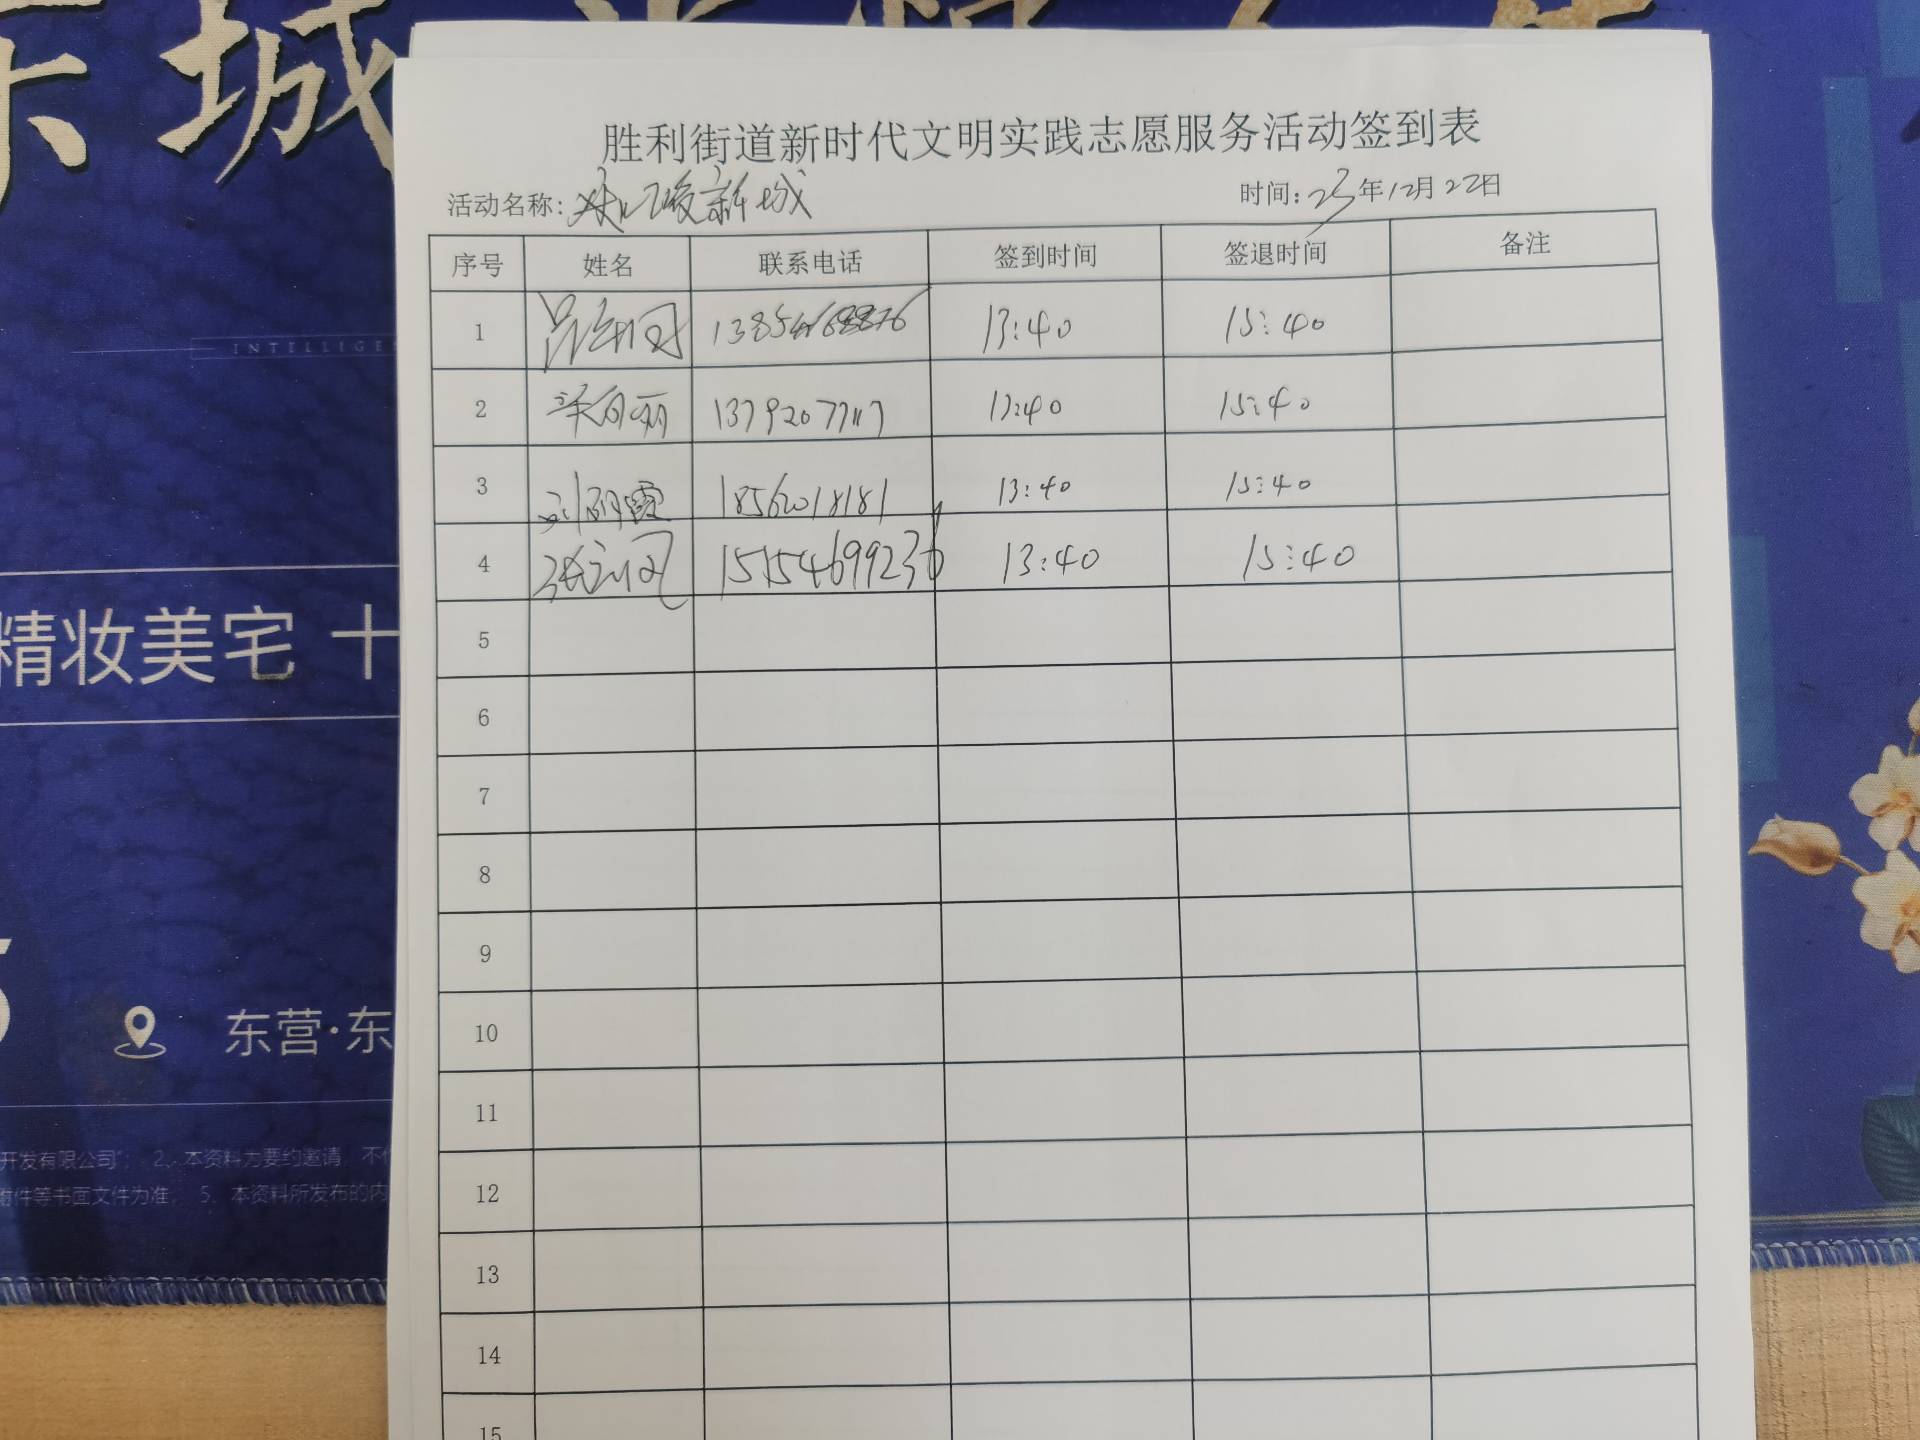 城
INTELLIGE
精妆美宅 十
东营·东
开发有限公司"; 2、本资料为要约邀请, 不
附件等书面文件为准; 5、本资料所发布的内
胜利街道新时代文明实践志愿服务活动签到表
活动名称: 新城 时间:23年12月22日
序号 姓名 联系电话 签到时间 签退时间 备注
1 13:40 15:40
2 13792077117 13:40 15:40
3 刘丽霞 18562018181 13:40 15:40
4 15154699236 13:40 15:40
5
6
7
8
9
10
11
12
13
14
15